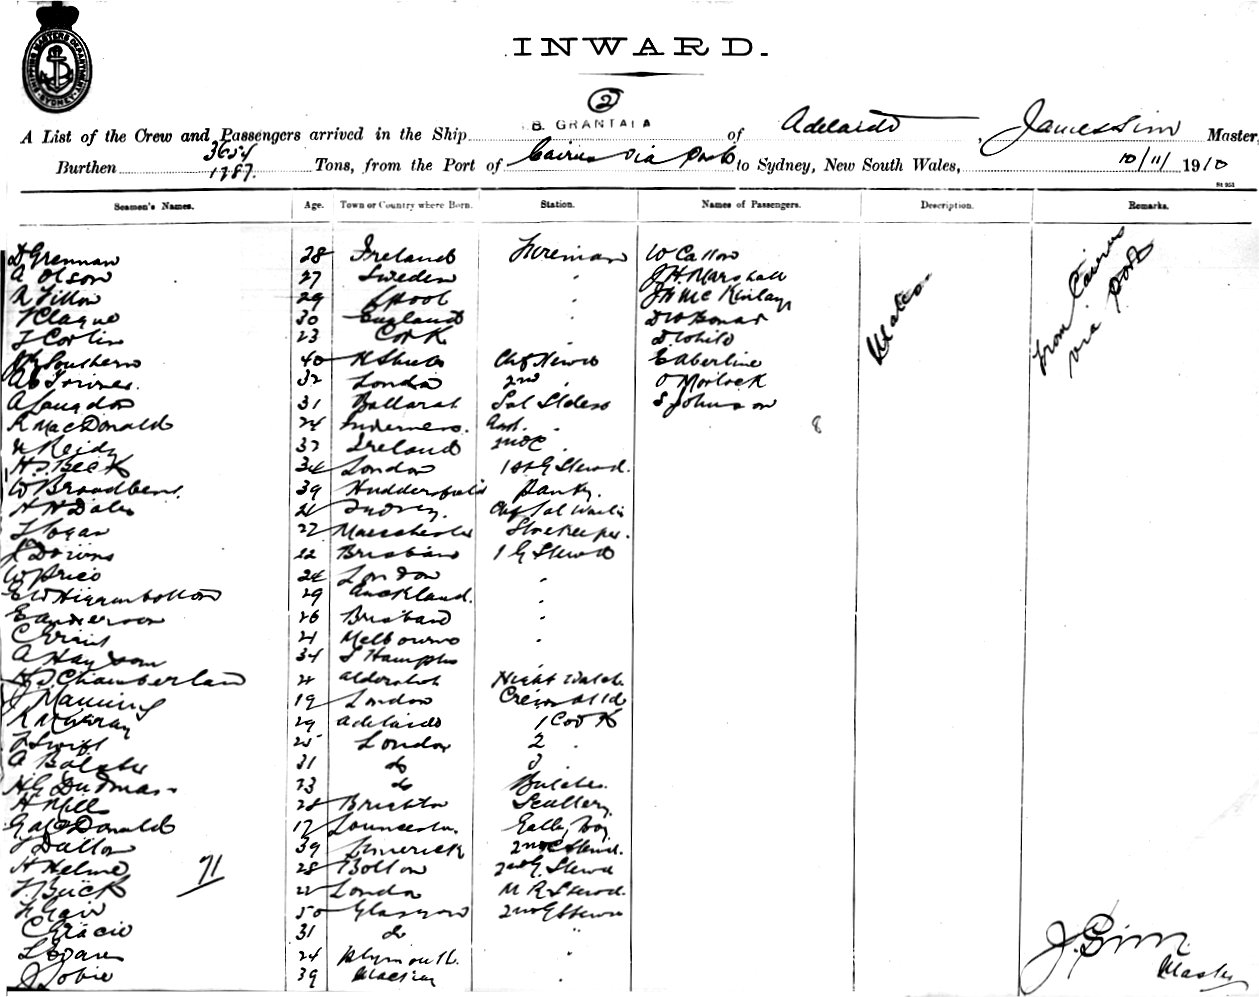 SHIPPING MASTERS DEPARTMENT SYDNEY
INWARD.
2
A List of the Crew and Passengers arrived in the Ship B. GRANTALA of Adelaide, James Sim Master,
Burthen 3654 1787. Tons, from the Port of Cairns via ports to Sydney, New South Wales, 10/11/1910
St 953
Seamen's Names. Age. Town or Country where Born. Station. Names of Passengers. Description. Remarks.
D Grennan 28 Ireland Fireman W Callow Males From Cairns via ports
A Olson 27 Sweden " J H Marshall
N Fillow 29 Lpool " J W McKinlay
F Clague 30 England " D W Bonar
T Corlin 23 Cork " D White
Southern 40 N Shields Chf Stewd E Aberline
32 London 2nd " O Morlock
A Langdon 31 Ballarat Sal Stdess S Johnson
R MacDonald 24 Inverness. Asst. " 8
Reidy 32 Ireland 2nd C "
H J Beck 34 London 1st G Stewd.
W Broadbent 39 Huddersfield Pantry.
H H Dales 21 Sydney. Chf Sal Waiter
T Logan 22 Manchester Storekeeper.
Downs 22 Brisbane 1 G Steward
W Price 24 London "
E W Higginbottom 29 Auckland. "
E Anderson 26 Brisbane "
C Grant 21 Melbourne "
A Hayson 34 S Hampton "
H J Chamberlain 21 Aldershot Night Watch
J Manning 19 London Crews Attd
R McGray 29 Adelaide 1 Cook
F Swift 25 London 2 "
A Balster 31 do 3 "
H G Dudman 23 do Butcher
H Mills 28 Brighton Scullery
G McDonald 17 Launceston. Galley Boy
F Dallow 39 Limerick 2nd C Stewd.
H Helme 71 28 Bolton 2nd G. Stewd
F. Buck 22 London M R Stewd.
Gair 50 Glasgow 2nd G Stewd
C Gracie 31 do "
24 Plymouth. "
J Tobie 39 Mackay " J. Sim. Master